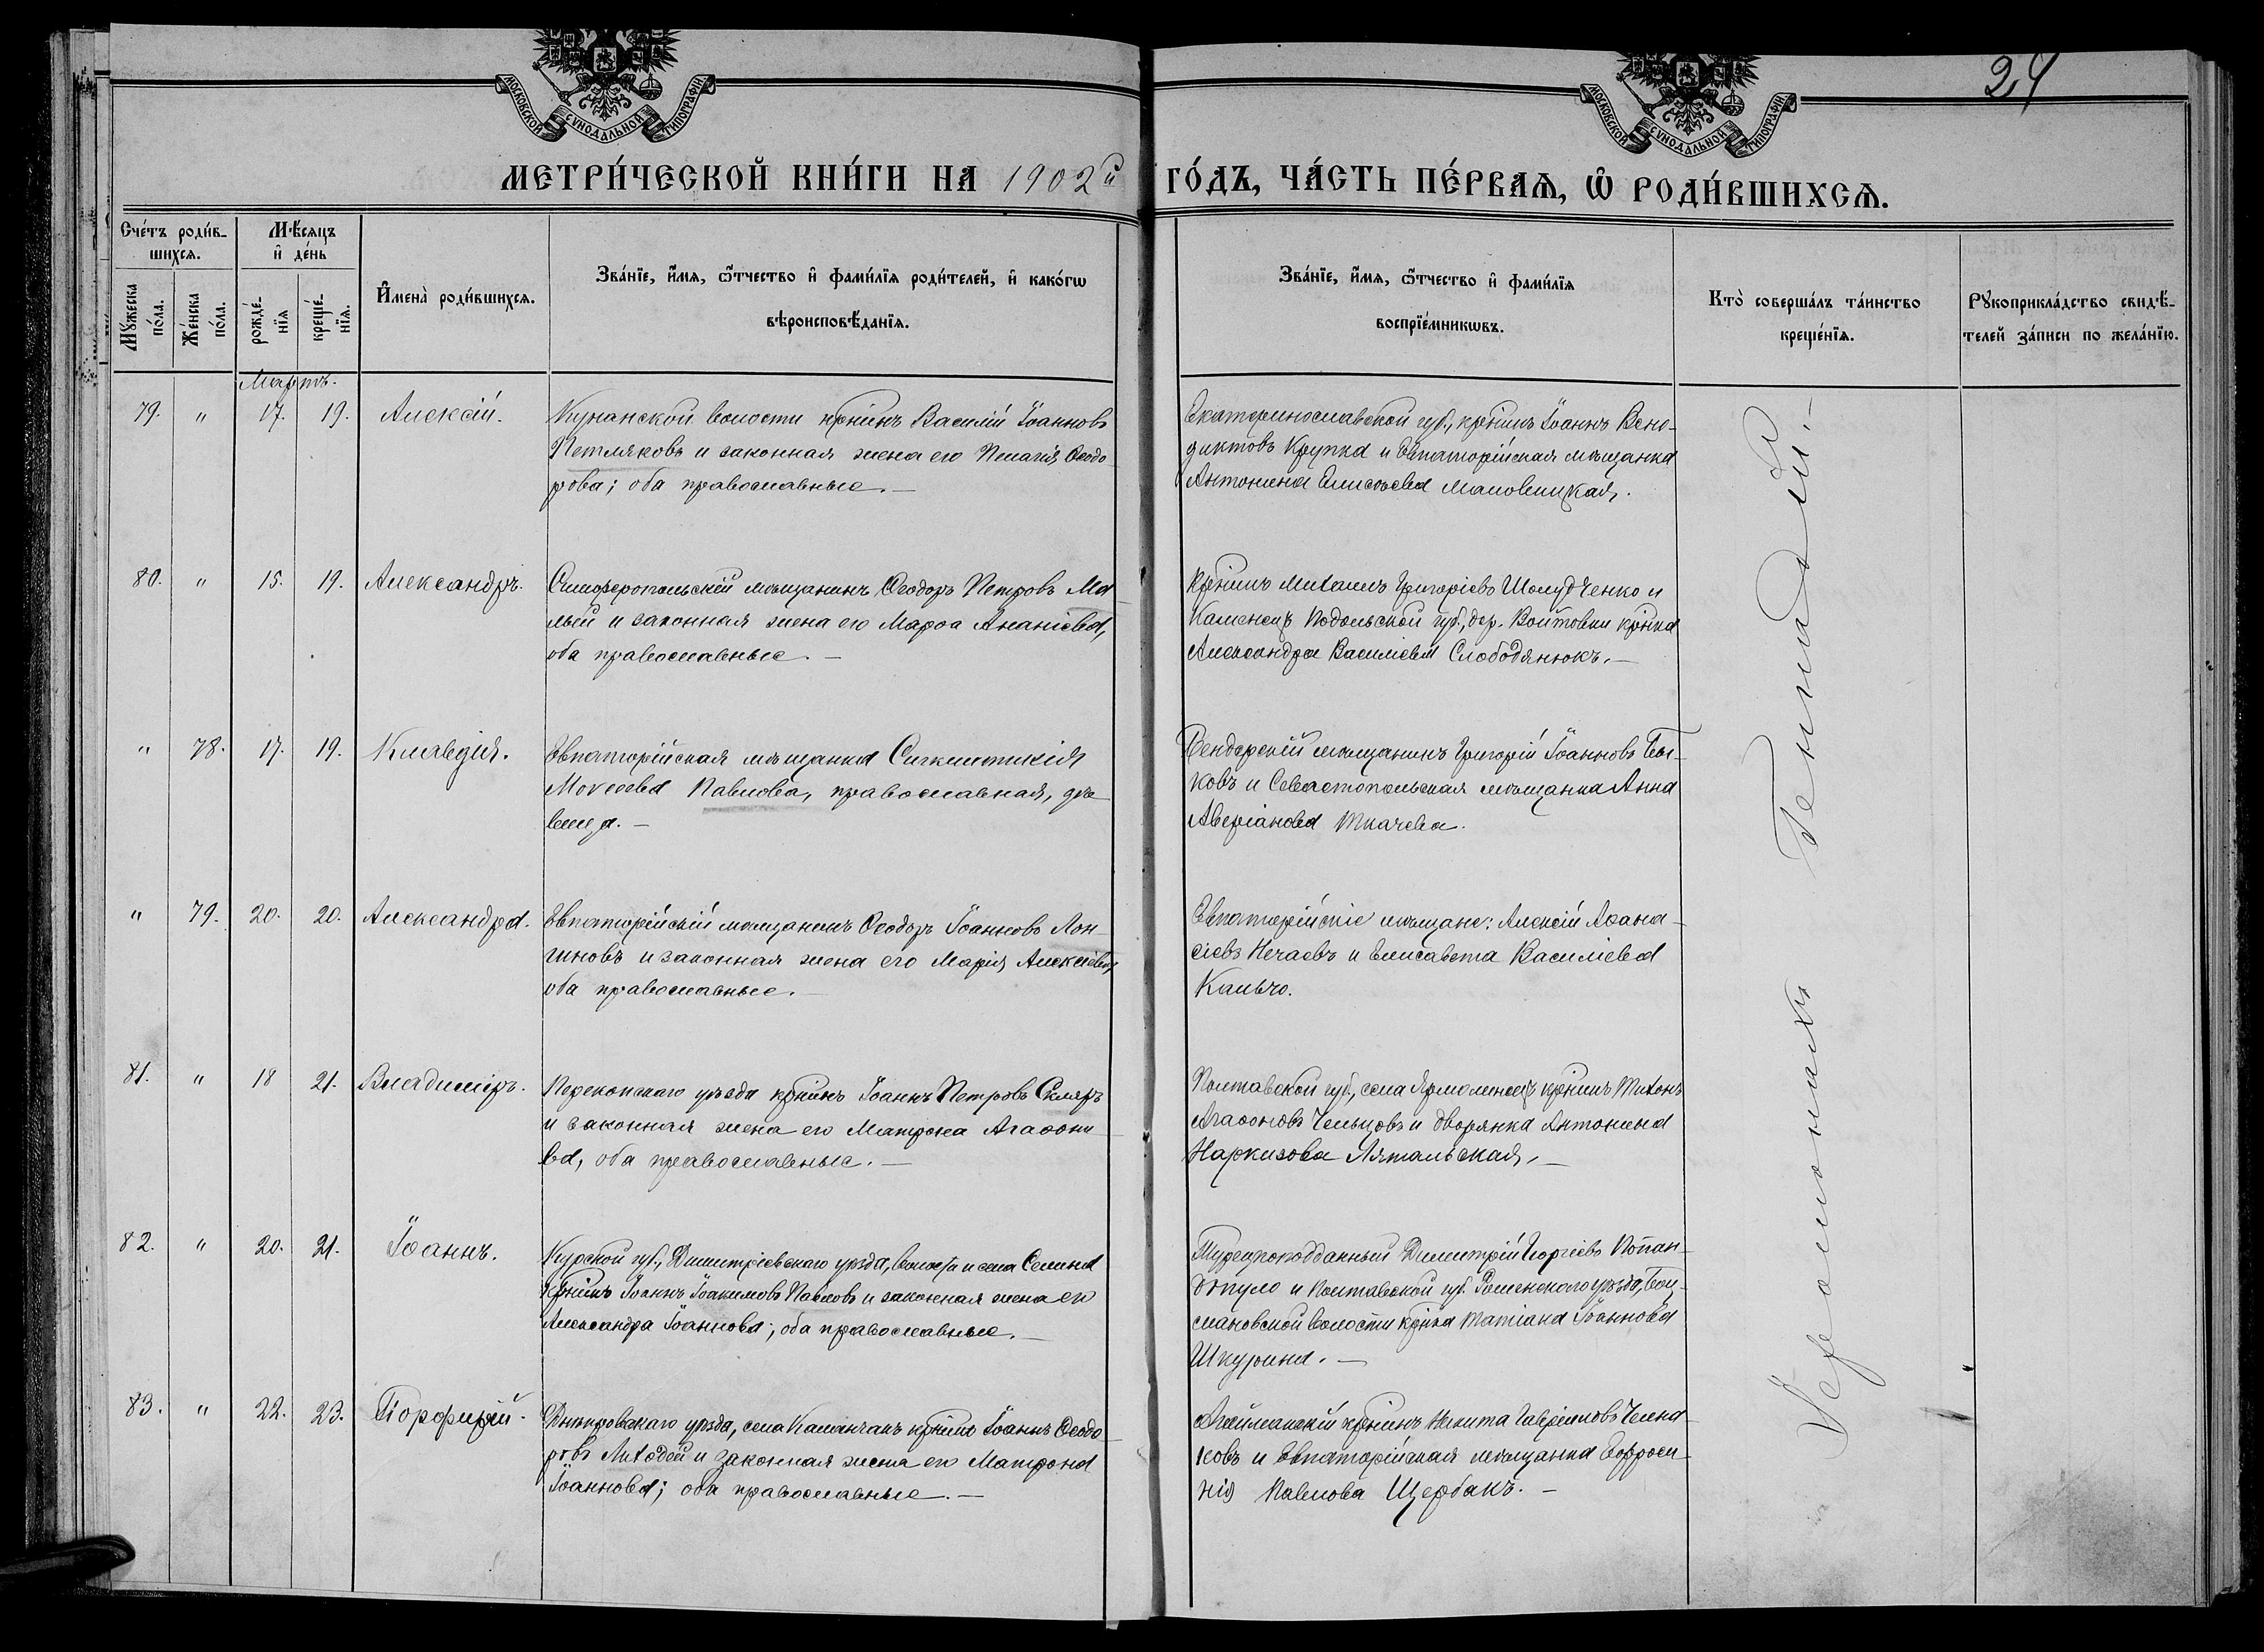 МОСКОВСКОЙ СѴНОДАЛЬНОЙ ТИПОГРАФІИ.
МОСКОВСКОЙ СѴНОДАЛЬНОЙ ТИПОГРАФІИ.
24
МЕТРИ́ЧЕСКОЙ КНИ́ГИ НА 1902й ГО́ДЪ, ЧА́СТЬ ПЕ́РВАѦ, Ѡ҆ РОДИ́ВШИХСѦ.
Сче́тъ роди́в-
шихсѧ.
Мꙋ́жеска по́ла.
Же́нска по́ла.
Мѣ́сѧцъ
и҆ де́нь
рожде́-
нїѧ
креще́-
нїѧ.
И҆мена̀ роди́вшихсѧ.
Зва́нїе, и҆́мѧ, ѻ҆́тчество и҆ фами́лїѧ роди́телей, и҆ како́гѡ
вѣроисповѣ́данїѧ.
Зва́нїе, и҆́мѧ, ѻ҆́тчество и҆ фами́лїѧ
воспрїе́мникѡвъ.
Кто̀ соверша́лъ та́инство
креще́нїѧ.
Рꙋкоприкла́дство свидѣ́-
телей за́писи по жела́нїю.
Мартъ.
79. " 17. 19. Алексій.
Василій Іоанновъ
Петляковъ и законная жена его Пелагія Ѳеодо
рова; оба православные.—
Екатеринославской губ., крнинъ Іоаннъ Вене-
диктовъ Крупка и Евпаторійская мѣщанка
Антонина Елисѣева
80. " 15. 19. Александръ.
Симферопольскій мѣщанинъ Ѳеодоръ Петровъ Ма
лый и законная жена его Марѳа Ананіева,
оба православные.—
крнинъ Михаилъ Григоріевъ Шолудченко и
Каменецъ Подольской губ., дер. Войтовки крнка
Александра Василіева Слободянюкъ.—
" 78. 17. 19. Клавдія.
Евпаторійская мѣщанка Синклитикія
Мокеева Павлова, православная, дѣ
вица.—
Бендерскій мѣщанинъ Григорій Іоанновъ Бы-
ковъ и Севастопольская мѣщанка Анна
Аверіанова Ткачева.
" 79. 20. 20. Александра.
Евпаторійскій мѣщанинъ Ѳеодоръ Іоанновъ Лон-
гиновъ и законная жена его Марія Алексіева,
оба православные.—
Евпаторійскіе мѣщане: Алексій Аѳана-
сіевъ Нечаевъ и Елисавета Василіева
Кальчо.
81. " 18 21. Владиміръ.
Перекопскаго уѣзда крнинъ Іоаннъ Петровъ Скляръ
и законная жена его Матрона Агаѳони
ва, оба православные.—
Полтавской губ., села Ярмолинецъ крнинъ Тихонъ
Агаѳоновъ Чельцовъ и дворянка Антонина
Наркизова Лятальская.—
82. " 20. 21. Іоаннъ.
Курской губ., Димитріевскаго уѣзда, волости и села Селина
крнинъ Іоаннъ Іоакимовъ Павловъ и законная жена его
Александра Іоаннова; оба православные.—
Турецкоподданный Димитрій Георгіевъ Попан-
допуло и Полтавской губ. Роменскаго уѣзда,
волости крнка Татіана Іоаннова
Шкурина.—
83. " 22. 23. Порфирій.
Днѣпровскаго уѣзда, села Каланчакъ крнинъ Іоаннъ Ѳеодо
ровъ Лиходѣй и законная жена его Матрона
Іоаннова; оба православные.—
крнинъ Никита Гавріиловъ
ковъ и Евпаторійская мѣщанка Евфроси-
нія Павлова Щербакъ.—
Іеромонахъ Геннадій.